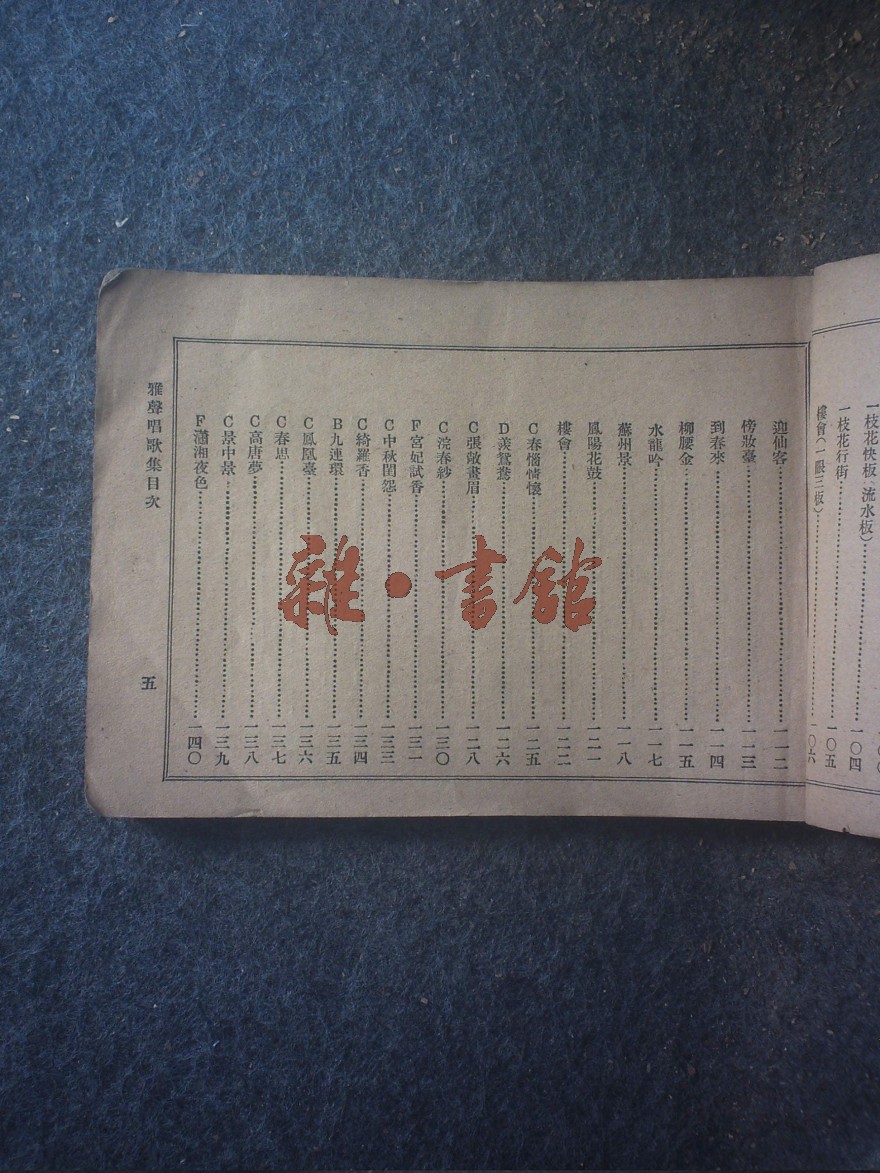 一枝花快板(流水板)
一枝花行街 一〇四
樓會(一眼三板) 一〇五
一〇六
迎仙客 一一二
傍妝臺 一一三
到春來 一一四
柳腰金 一一五
水龍吟 一一七
蘇州景 一一八
鳳陽花鼓 一二一
樓會 一二二
C春惱情懷 一二五
D羨鴛鴦 一二六
C張敞畫眉 一二八
C浣春紗 一三〇
F宮妃試香 一三一
C中秋閨怨 一三三
C綺羅香 一三四
B九連環 一三五
C鳳凰臺 一三六
C春思 一三七
C高唐夢 一三八
C景中景 一三九
F瀟湘夜色 一四〇
雅聲唱歌集目次 五
雜·書館